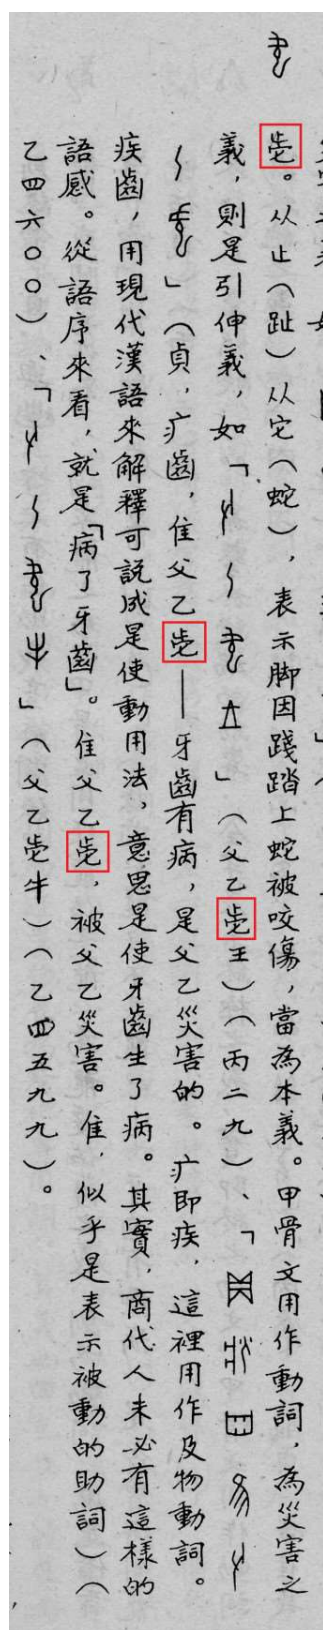 。从止(趾)从它(蛇),表示脚因踐踏上蛇被咬傷,當為本義。甲骨文用作動詞,為災害之
義,則是引伸義,如「」(父乙王)(丙二九)、「
」(貞,疒齒,隹父乙——牙齒有病,是父乙災害的。疒即疾,這裡用作及物動詞。
疾齒,用現代漢語來解釋可説成是使動用法,意思是使牙齒生了病。其實,商代人未必有這樣的
語感。從語序來看,就是「病了牙齒」。隹父乙,被父乙災害。隹,似乎是表示被動的助詞)(
乙四六〇〇)、「」(父乙牛)(乙四五九九)。